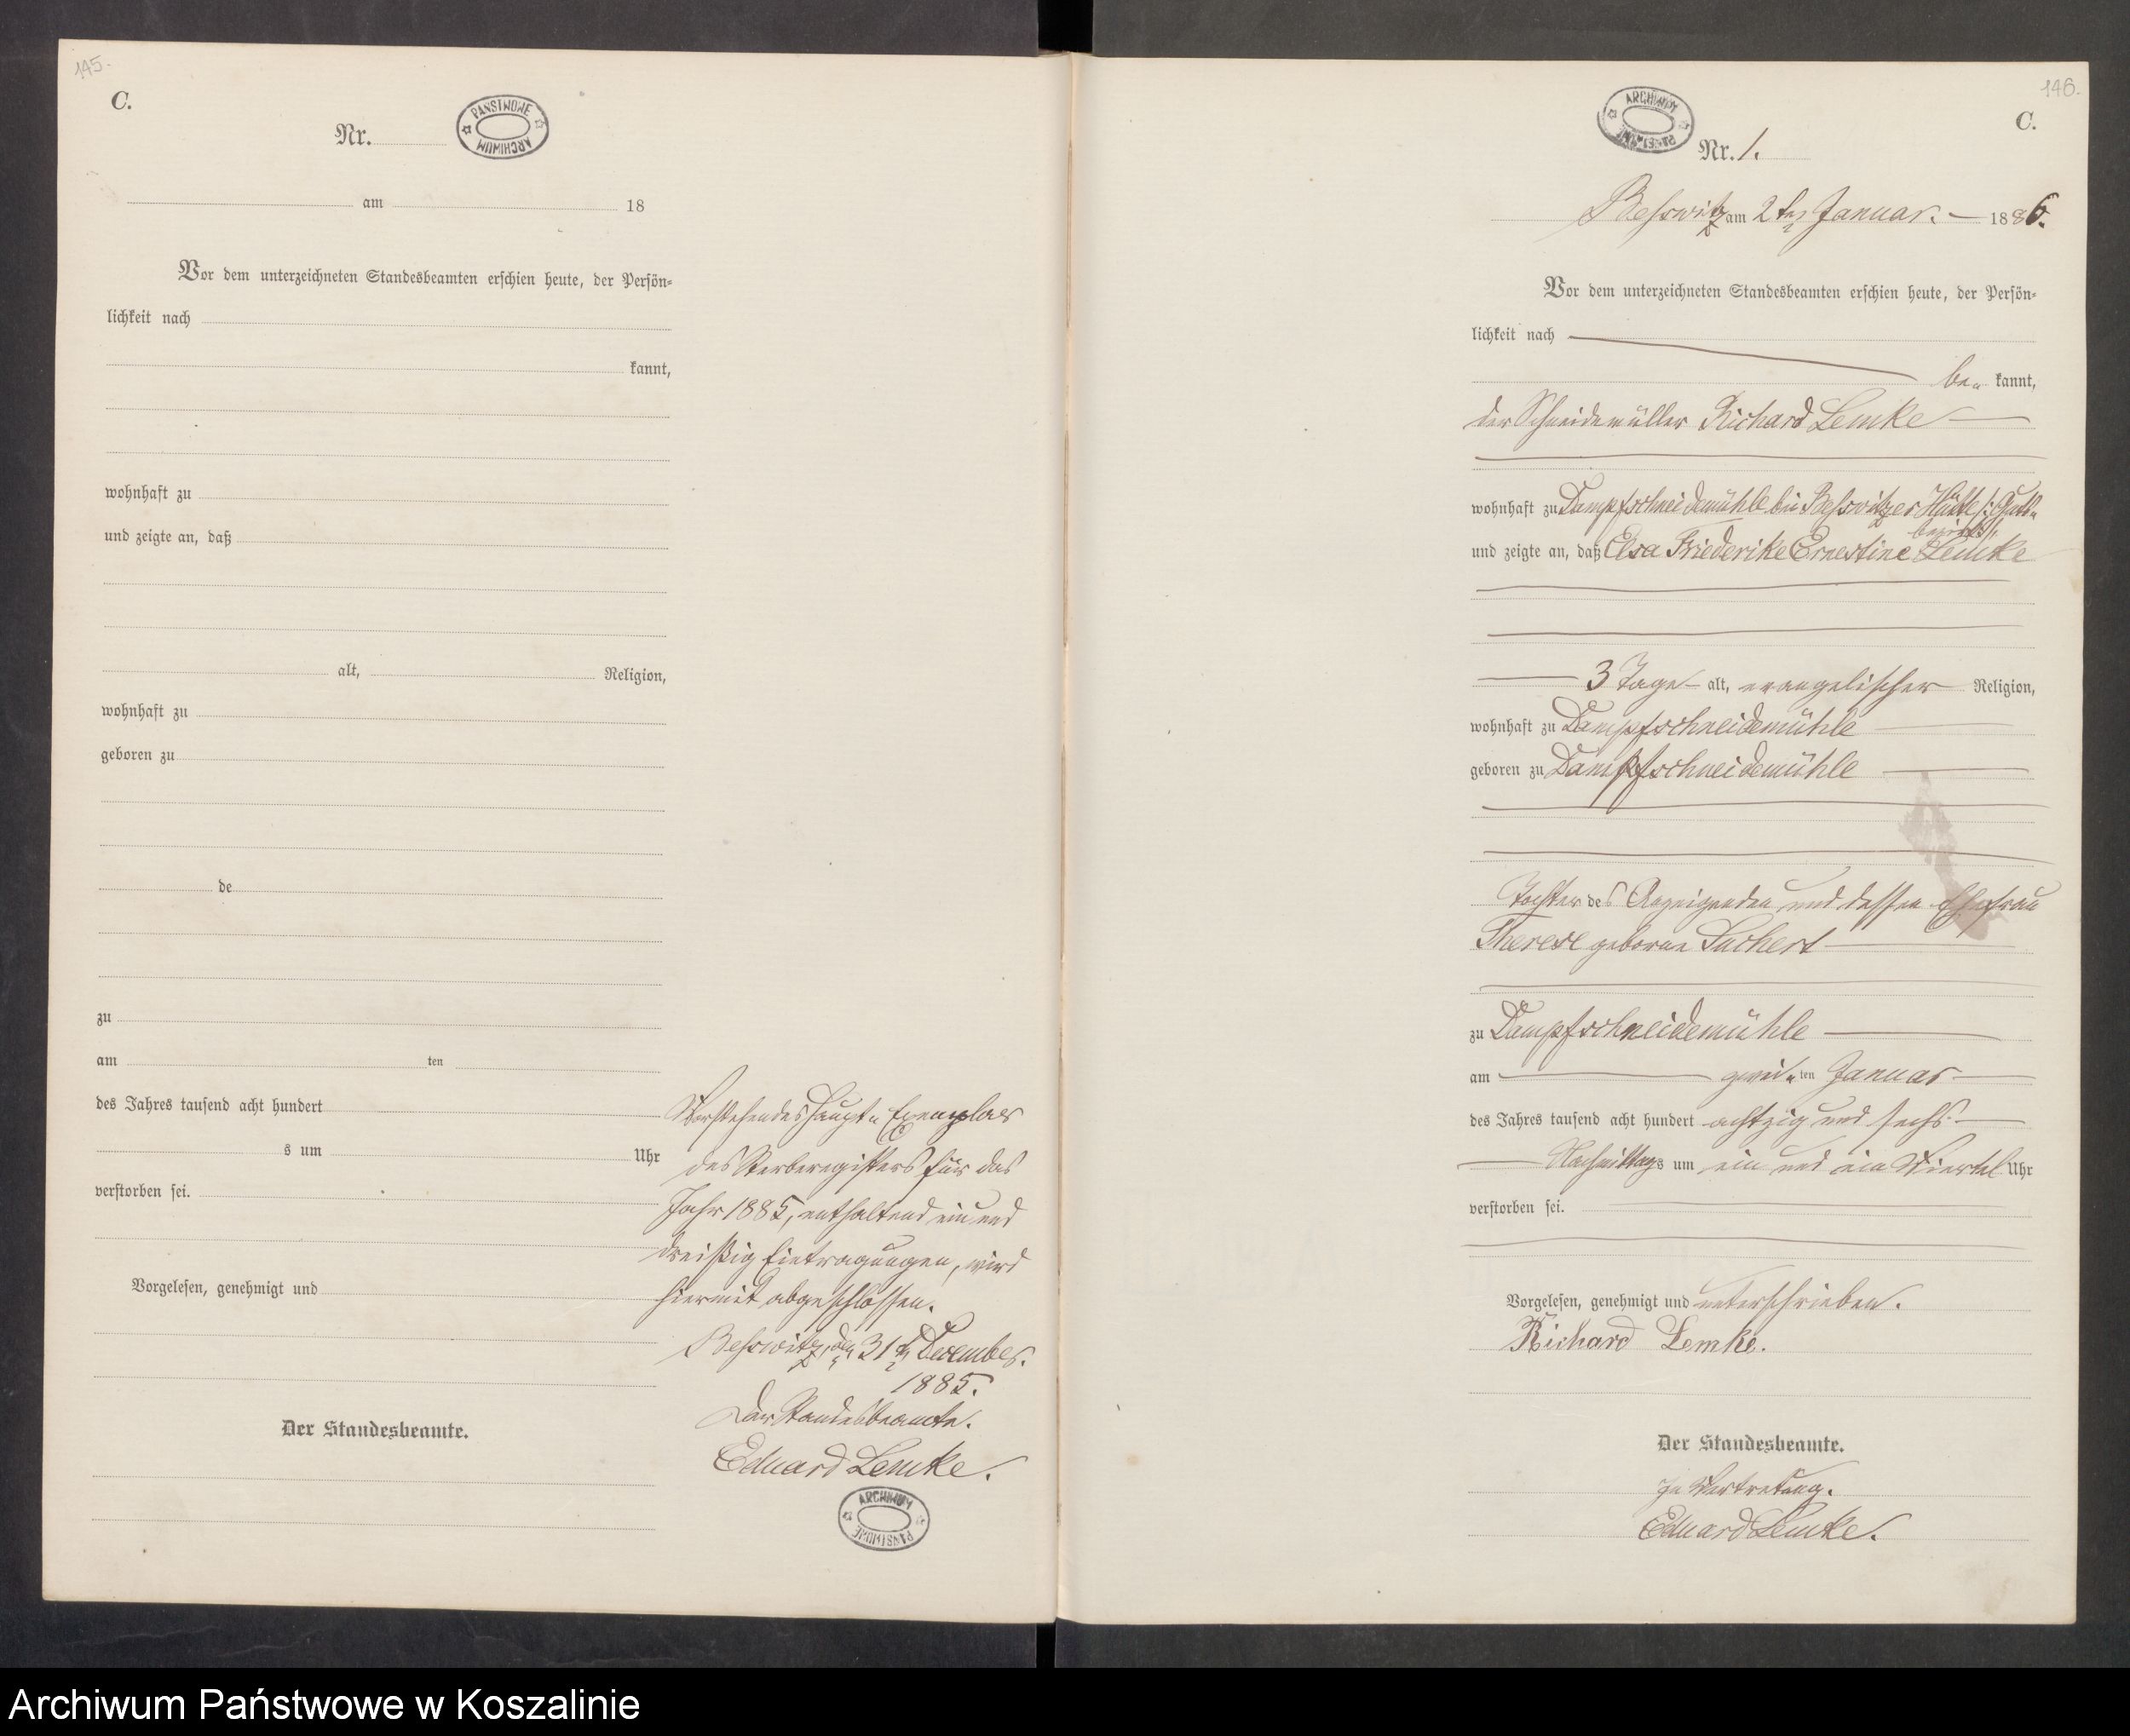 145.
C.
PAŃSTWOWE
ARCHIWUM
Nr.
am 18
Vor dem unterzeichneten Standesbeamten erschien heute, der Persön-
lichkeit nach
kannt,
wohnhaft zu
und zeigte an, daß
alt, Religion,
wohnhaft zu
geboren zu
de
zu
am ten
des Jahres tausend acht hundert
s um Uhr
verstorben sei.
Vorgelesen, genehmigt und
Der Standesbeamte.
Vorstehendes Haupt-Exemplar
des Sterberegisters für das
Jahr 1885, enthaltend ein und
dreißig Eintragungen, wird
hiermit abgeschlossen.
Beßwitz, den 31ten December.
1885.
Der Standesbeamte.
Eduard Lemke.
ARCHIWUM
PAŃSTWOWE
146.
C.
ARCHIWUM
PAŃSTWOWE
Nr. 1.
Beßwitz am 2ten Januar. 1886.
Vor dem unterzeichneten Standesbeamten erschien heute, der Persön-
lichkeit nach
be- kannt,
der Schneidemüller Richard Lemke
wohnhaft zu Dampfschneidemühle bei Beßwitzer Hütte /: Guts-
bezirk :/,
und zeigte an, daß Elsa Friederike Ernestine Lemke
3 Tage alt, evangelischer Religion,
wohnhaft zu Dampfschneidemühle
geboren zu Dampfschneidemühle
Tochter des Anzeigenden und dessen Ehefrau
Therese geborne Suckert
zu Dampfschneidemühle
am zwei-ten Januar
des Jahres tausend acht hundert achtzig und sechs
Nachmittags um ein und ein Viertel Uhr
verstorben sei.
Vorgelesen, genehmigt und unterschrieben.
Richard Lemke.
Der Standesbeamte.
In Vertretung.
Eduard Lemke.
Archiwum Państwowe w Koszalinie